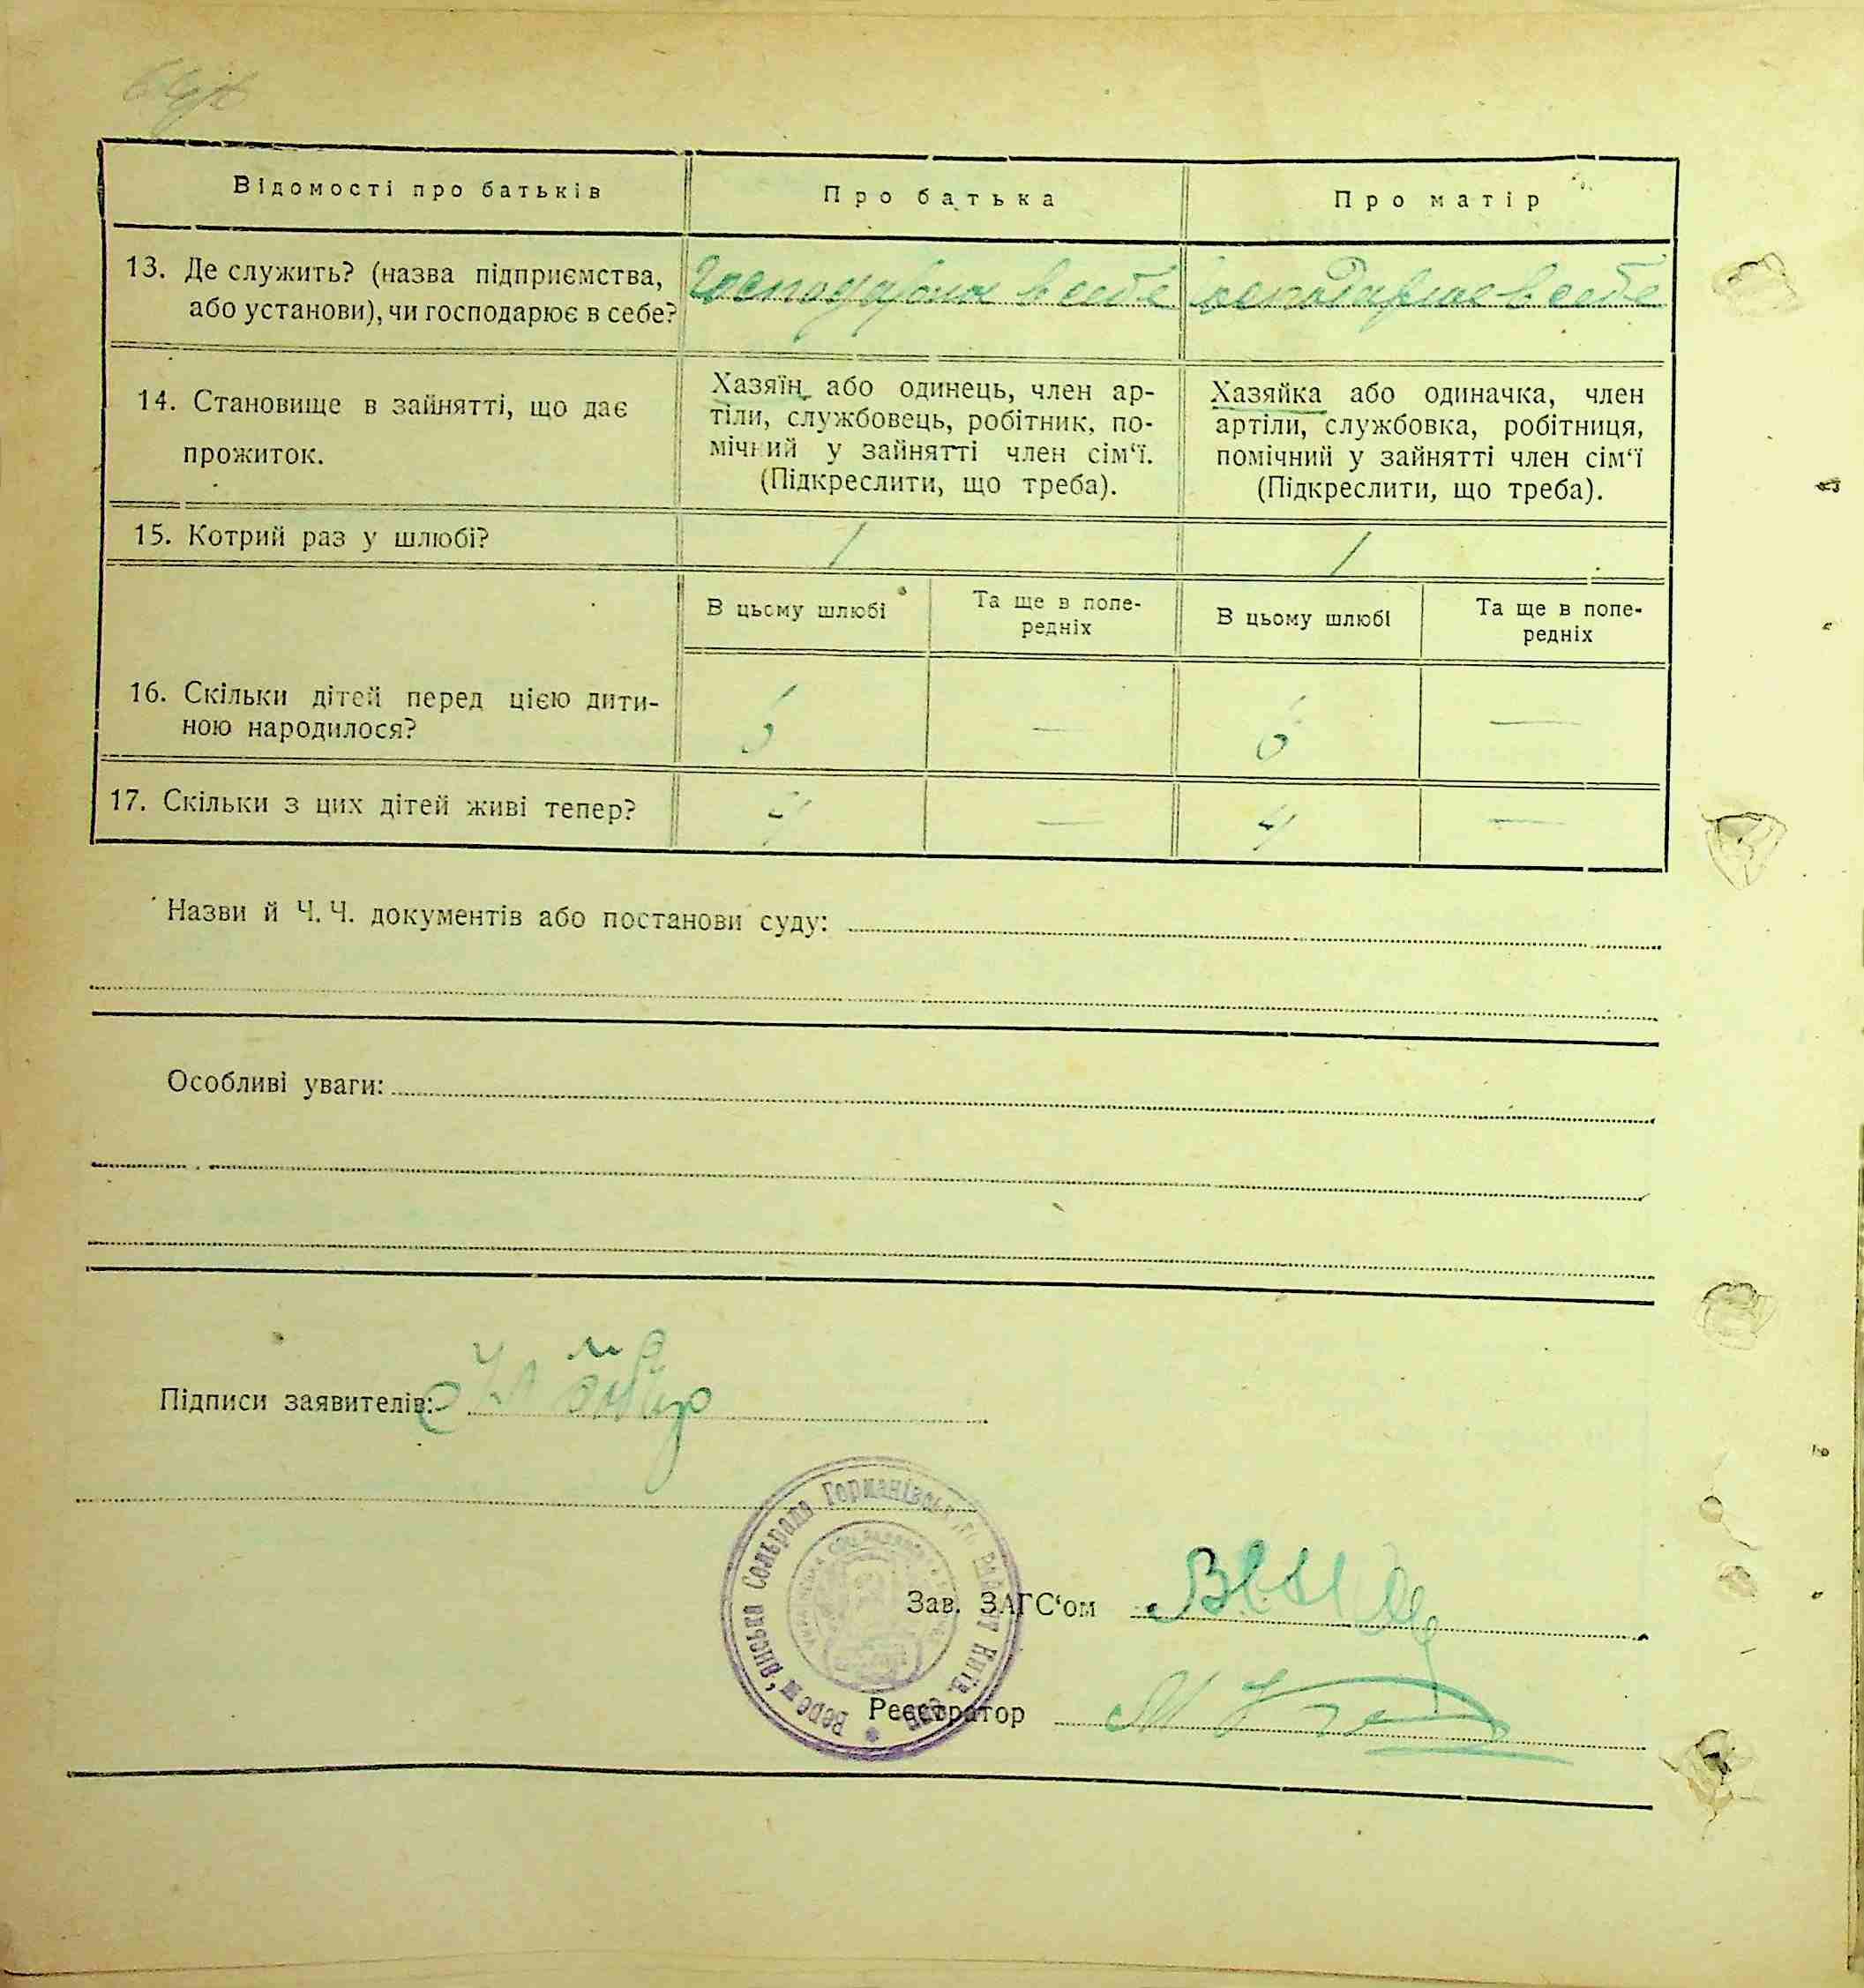 Відомості про батьків
Про батька
Про матір
13. Де служить? (назва підприємства, або установи), чи господарює в себе?
Господарює в себе
господарює в себе
14. Становище в зайнятті, що дає
прожиток.
Хазяїн або одинець, член ар-
тіли, службовець, робітник, по-
мічний у зайнятті член сім‘ї.
(Підкреслити, що треба).
Хазяйка або одиначка, член
артіли, службовка, робітниця,
помічний у зайнятті член сім‘ї
(Підкреслити, що треба).
15. Котрий раз у шлюбі?
1
1
В цьому шлюбі
Та ще в попе-
редніх
В цьому шлюбі
Та ще в попе-
редніх
16. Скільки дітей перед цією дити-
ною народилося?
—
6
—
17. Скільки з цих дітей живі тепер?
4
—
4
—
Назви й Ч. Ч. документів або постанови суду:
Особливі уваги:
Підписи заявителів:
Зав. ЗАГС‘ом
Реєстратор
Сільрада Германівського району Київ.